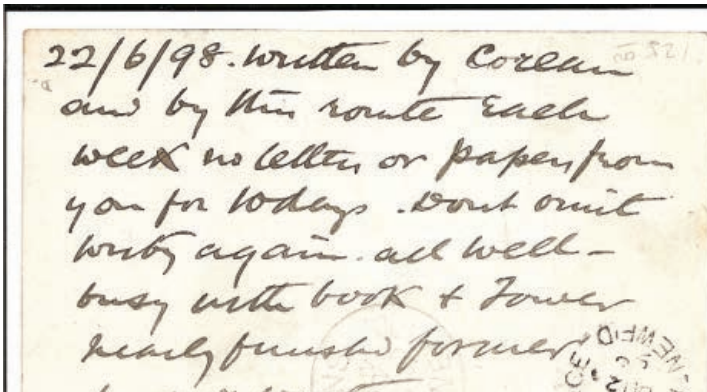 22/6/98. written by Corean
and by this route Each
week no letter or paper from
you for 10 days. Dont omit
writg again. all well -
busy with book & Tower
nearly finishd former
NEWF'D